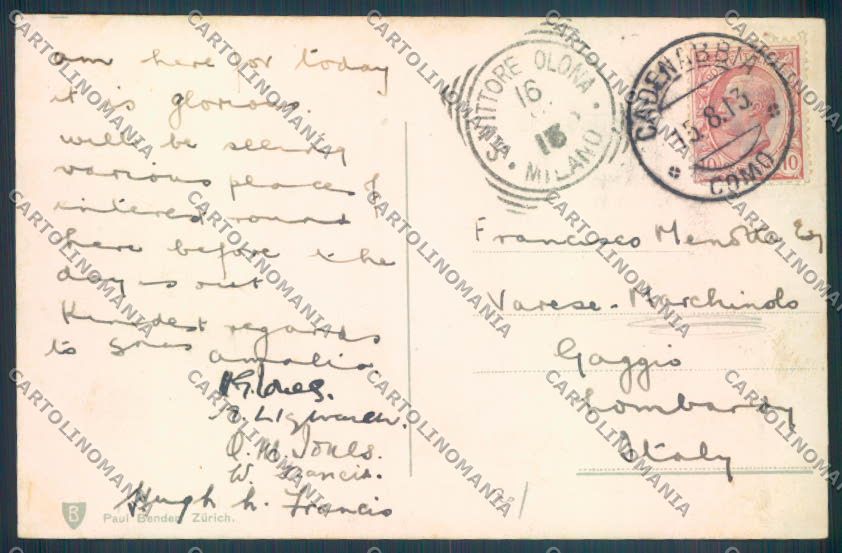 am here for today
it is glorious.
will be seeing
various places of
interest round
here before the
day is out
Kindest regards
to you Amalia
O. M. Jones.
W. Francis.
Hugh h. Francis
B
Paul Bender, Zürich.
S. VITTORE OLONA
16
13
MILANO
CADENABBIA
15.8.13.
COMO
10 10
Francesco Menotta Esq
Varese - Marchirolo
Gaggio
Lombardy
Italy
CARTOLINOMANIA